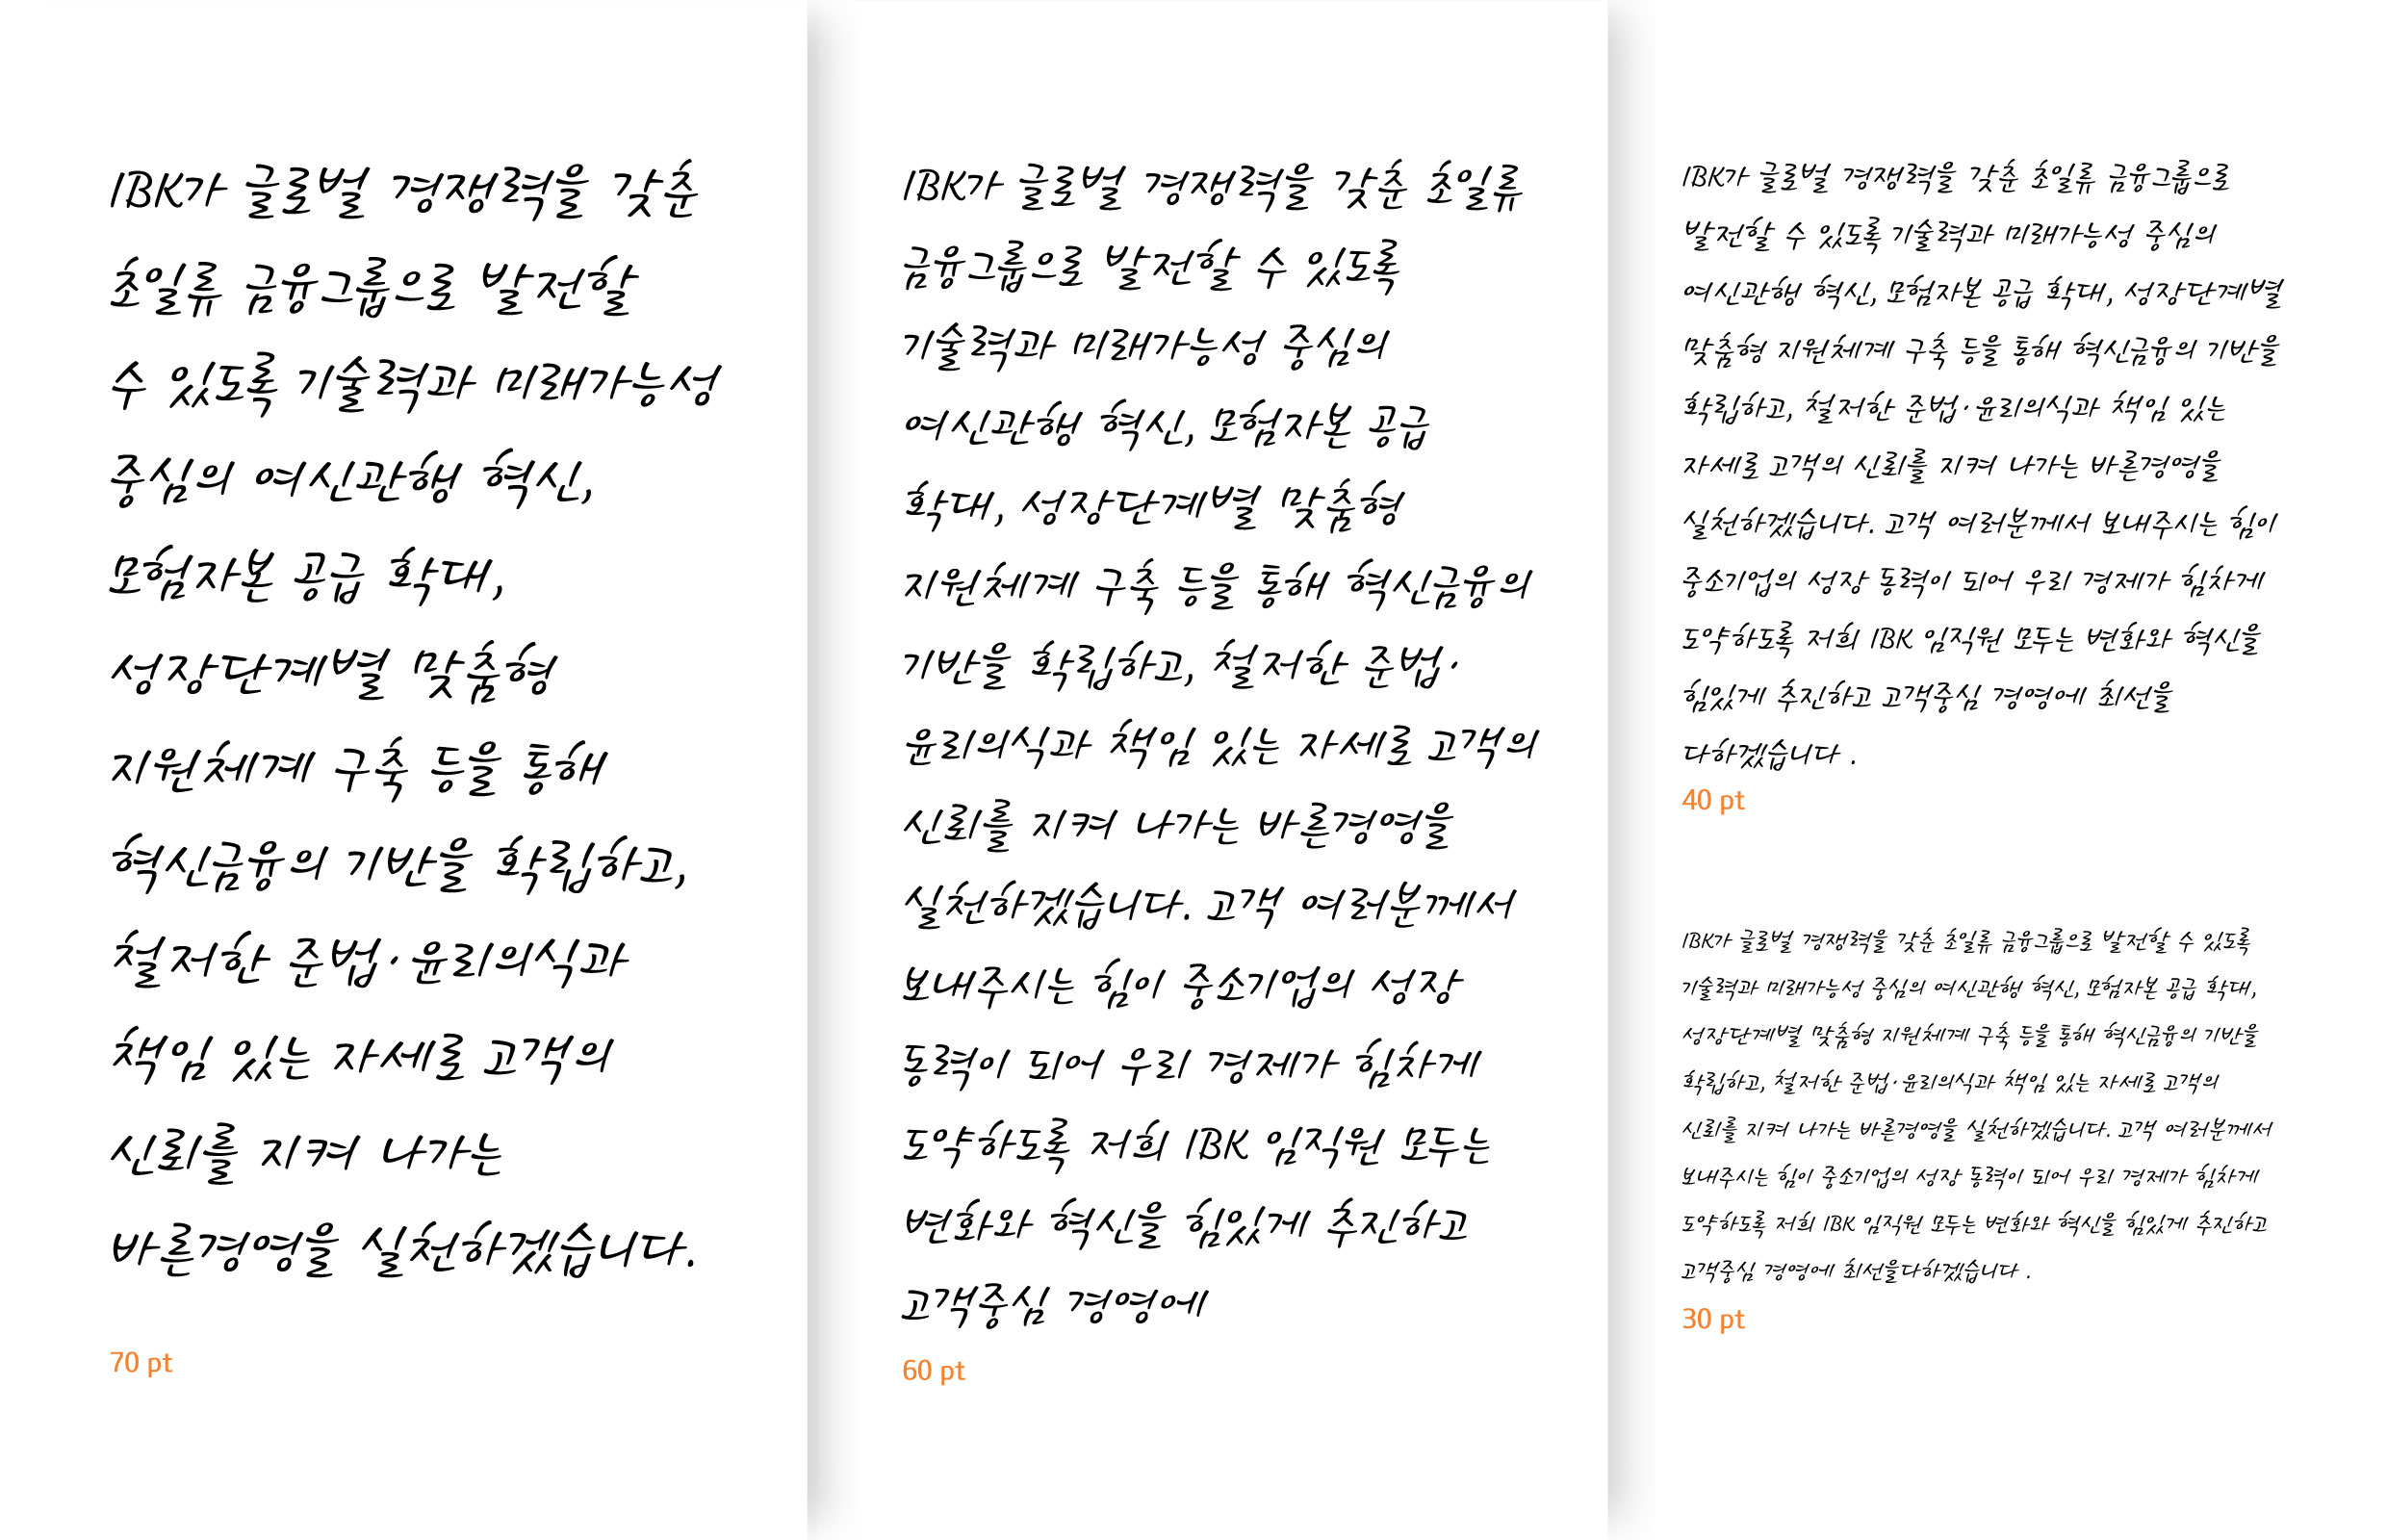 IBK가 글로벌 경쟁력을 갖춘
초일류 금융그룹으로 발전할
수 있도록 기술력과 미래가능성
중심의 여신관행 혁신,
모험자본 공급 확대,
성장단계별 맞춤형
지원체계 구축 등을 통해
혁신금융의 기반을 확립하고,
철저한 준법·윤리의식과
책임 있는 자세로 고객의
신뢰를 지켜 나가는
바른경영을 실천하겠습니다.
70 pt
IBK가 글로벌 경쟁력을 갖춘 초일류
금융그룹으로 발전할 수 있도록
기술력과 미래가능성 중심의
여신관행 혁신, 모험자본 공급
확대, 성장단계별 맞춤형
지원체계 구축 등을 통해 혁신금융의
기반을 확립하고, 철저한 준법·
윤리의식과 책임 있는 자세로 고객의
신뢰를 지켜 나가는 바른경영을
실천하겠습니다. 고객 여러분께서
보내주시는 힘이 중소기업의 성장
동력이 되어 우리 경제가 힘차게
도약하도록 저희 IBK 임직원 모두는
변화와 혁신을 힘있게 추진하고
고객중심 경영에
60 pt
IBK가 글로벌 경쟁력을 갖춘 초일류 금융그룹으로
발전할 수 있도록 기술력과 미래가능성 중심의
여신관행 혁신, 모험자본 공급 확대, 성장단계별
맞춤형 지원체계 구축 등을 통해 혁신금융의 기반을
확립하고, 철저한 준법·윤리의식과 책임 있는
자세로 고객의 신뢰를 지켜 나가는 바른경영을
실천하겠습니다. 고객 여러분께서 보내주시는 힘이
중소기업의 성장 동력이 되어 우리 경제가 힘차게
도약하도록 저희 IBK 임직원 모두는 변화와 혁신을
힘있게 추진하고 고객중심 경영에 최선을
다하겠습니다 .
40 pt
IBK가 글로벌 경쟁력을 갖춘 초일류 금융그룹으로 발전할 수 있도록
기술력과 미래가능성 중심의 여신관행 혁신, 모험자본 공급 확대,
성장단계별 맞춤형 지원체계 구축 등을 통해 혁신금융의 기반을
확립하고, 철저한 준법·윤리의식과 책임 있는 자세로 고객의
신뢰를 지켜 나가는 바른경영을 실천하겠습니다. 고객 여러분께서
보내주시는 힘이 중소기업의 성장 동력이 되어 우리 경제가 힘차게
도약하도록 저희 IBK 임직원 모두는 변화와 혁신을 힘있게 추진하고
고객중심 경영에 최선을다하겠습니다 .
30 pt